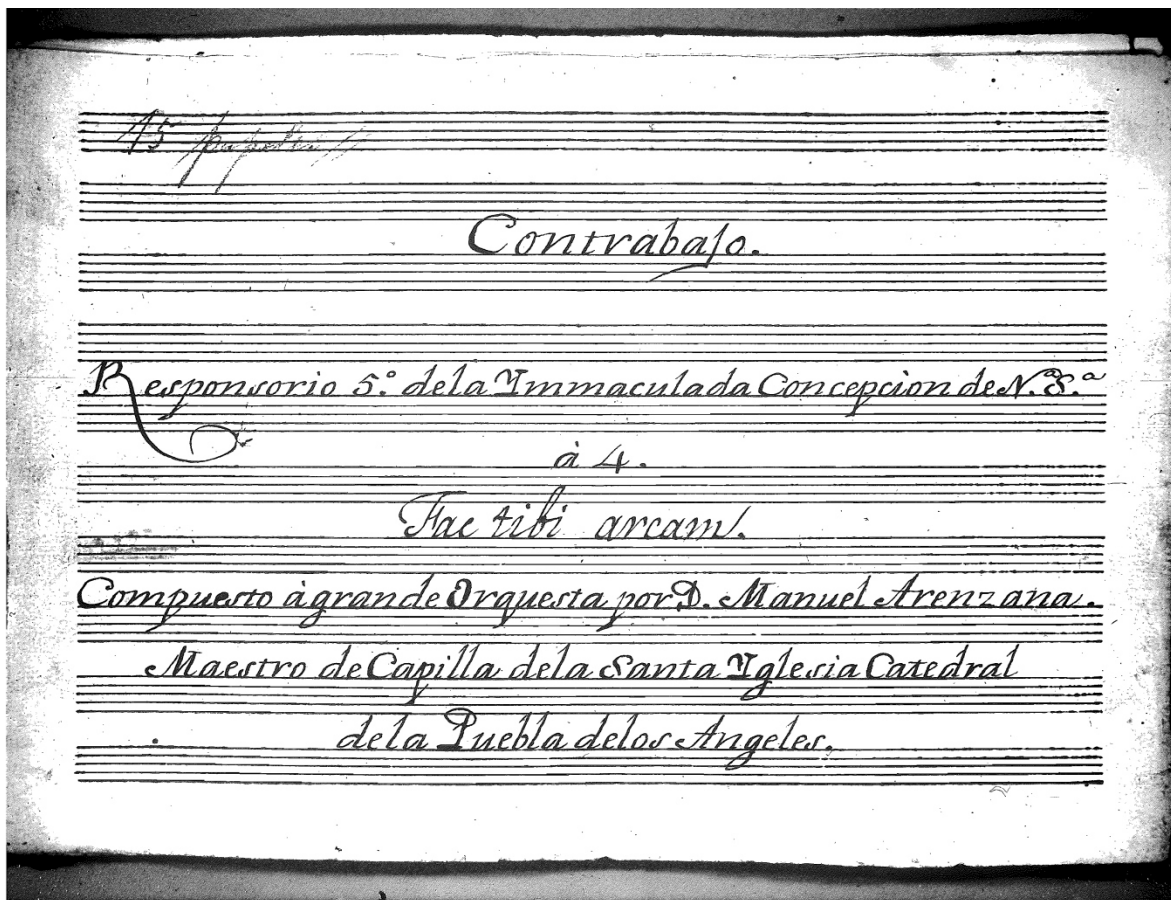 15 papeles
Contrabajo.
Responsorio 5.º dela Ymmaculada Concepcion de N.ª S.ª
à 4.
Fac tibi arcam.
Compuesto à grande Orquesta por D. Manuel Arenzana.
Maestro de Capilla dela Santa Yglesia Catedral
dela Puebla delos Angeles.